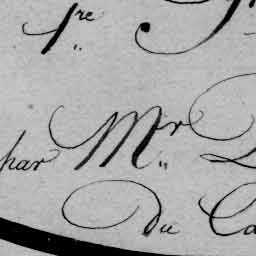 1re
par Mr
Du Ca